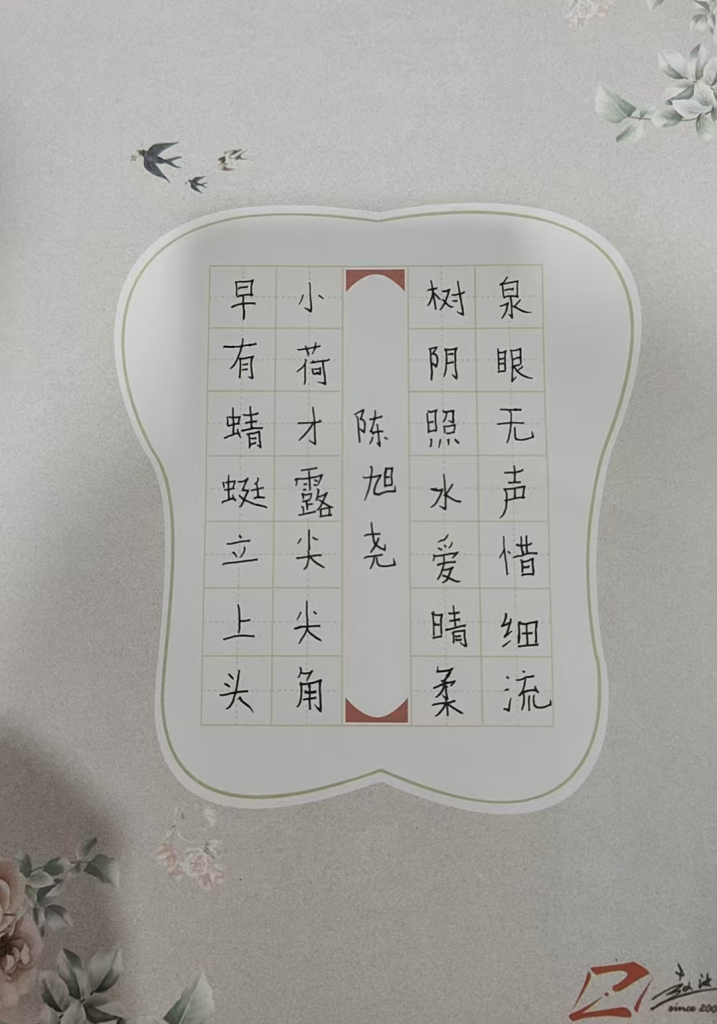 泉眼无声惜细流
树阴照水爱晴柔
陈旭尧
小荷才露尖尖角
早有蜻蜓立上头
since 200